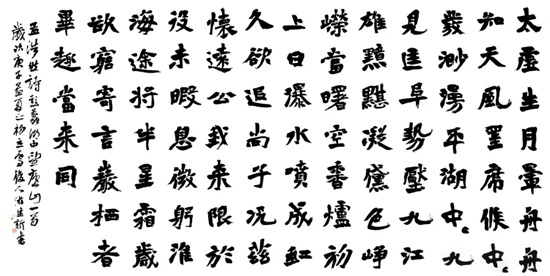 太虛生月暈舟子
知天風挂席候明
發渺漫平湖中〻流
見匡阜勢壓九江
雄黯黮凝黛色崢
嶸當曙空香爐初
上日瀑水噴成虹
久欲追尚子況茲
懷遠公我來限於
役未暇息微躬淮
海途將半星霜歲
欲窮寄言巖棲者
畢趣當來同
孟浩然詩彭蠡湖中望廬山一首
歲次庚子孟夏之初